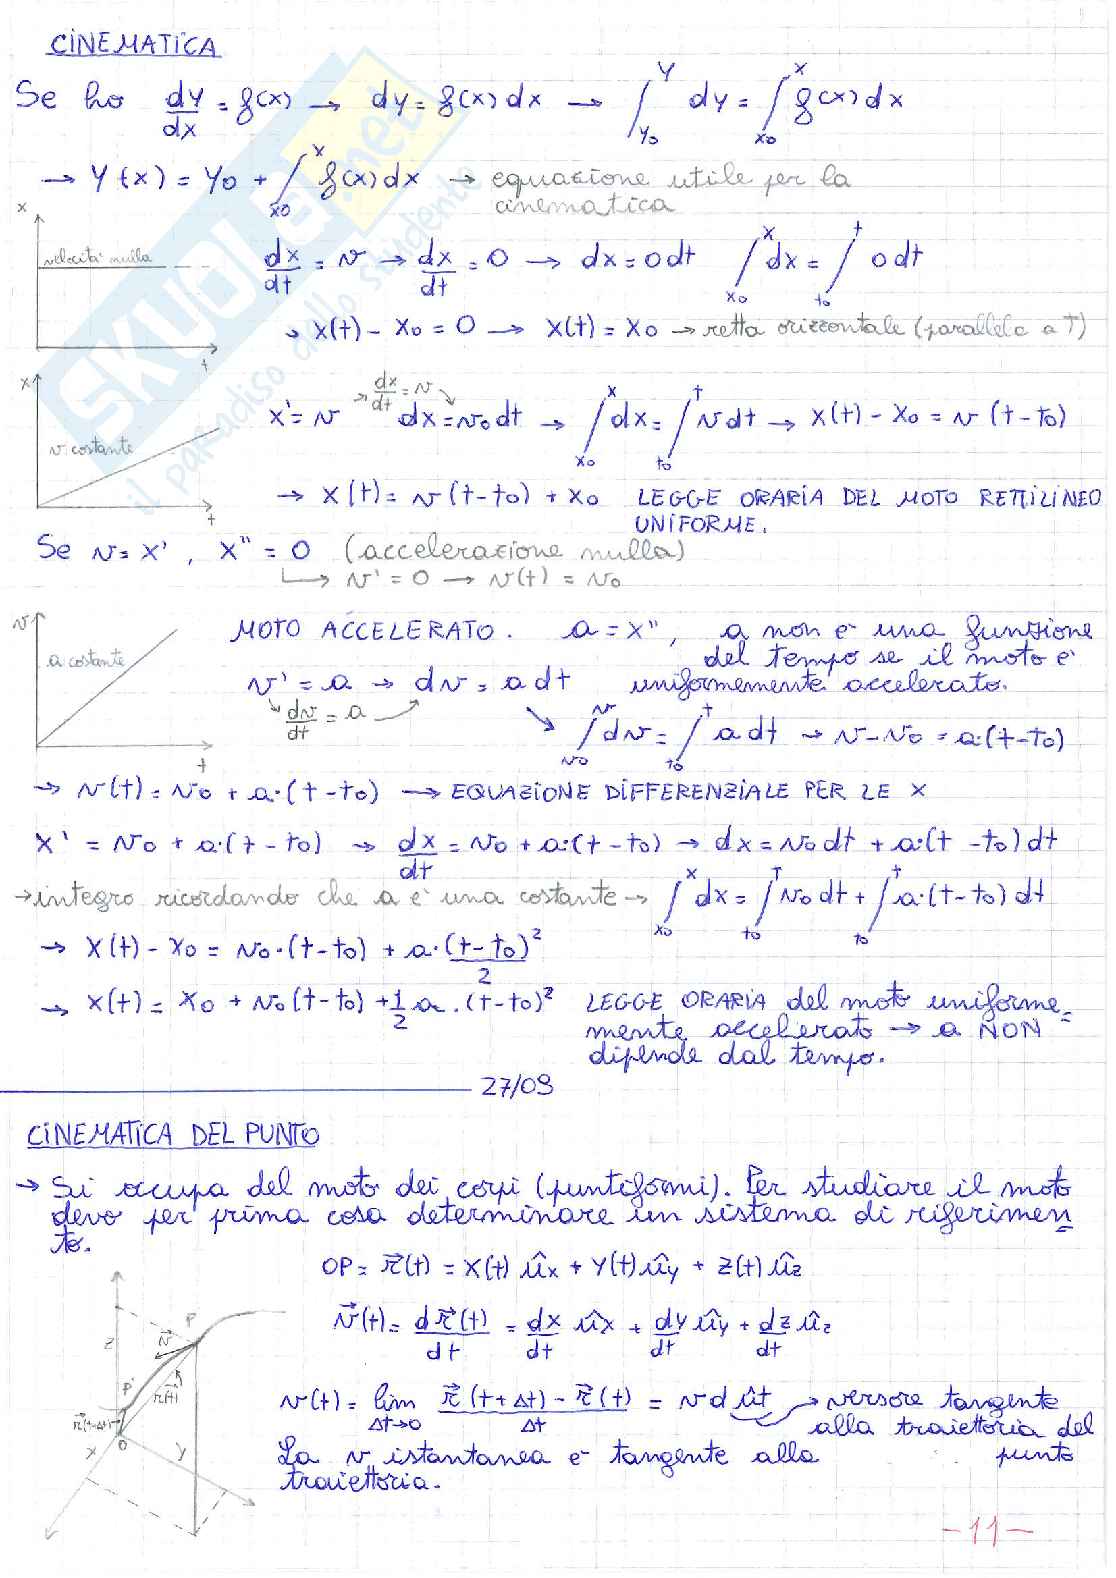 CINEMATICA
Se ho dy/dx = f(x) → dy = f(x) dx → ∫_{y0}^{y} dy = ∫_{x0}^{x} f(x) dx
→ y(x) = y0 + ∫_{x0}^{x} f(x) dx → equazione utile per la
cinematica
x
velocità nulla
t
dx/dt = v → dx/dt = 0 → dx = 0 dt ∫_{x0}^{x} dx = ∫_{t0}^{t} 0 dt
→ x(t) - x0 = 0 → x(t) = x0 → retta orizzontale (parallela a t)
x
v costante
t
x' = v → dx/dt = v dx = v0 dt → ∫_{x0}^{x} dx = ∫_{t0}^{t} v dt → x(t) - x0 = v (t-t0)
→ x(t) = v(t-t0) + x0 LEGGE ORARIA DEL MOTO RETTILINEO
UNIFORME.
Se v = x' , x'' = 0 (accelerazione nulla)
→ v' = 0 → v(t) = v0
v
a costante
t
MOTO ACCELERATO. a = x'', a non è una funzione
del tempo se il moto è
v' = a → dv = a dt uniformemente accelerato.
→ dv/dt = a
∫_{v0}^{v} dv = ∫_{t0}^{t} a dt → v-v0 = a·(t-t0)
→ v(t) = v0 + a·(t-t0) → EQUAZIONE DIFFERENZIALE PER LE X
x' = v0 + a·(t-t0) → dx/dt = v0 + a·(t-t0) → dx = v0 dt + a·(t-t0) dt
→ integro ricordando che a è una costante → ∫_{x0}^{x} dx = ∫_{t0}^{t} v0 dt + ∫_{t0}^{t} a·(t-t0) dt
→ x(t) - x0 = v0·(t-t0) + a·(t-t0)²/2
→ x(t) = x0 + v0(t-t0) + 1/2 a·(t-t0)² LEGGE ORARIA del moto uniforme=
mente accelerato → a NON
dipende dal tempo.
27/09
CINEMATICA DEL PUNTO
→ Si occupa del moto dei corpi (puntiformi). Per studiare il moto
devo per prima cosa determinare un sistema di riferimen=
to.
OP = r⃗(t) = x(t) ûx + y(t) ûy + z(t) ûz
v⃗(t) = dr⃗(t)/dt = dx/dt ûx + dy/dt ûy + dz/dt ûz
z
P
v⃗
P'
r⃗(t)
r⃗(t-Δt)
O
x
y
v(t) = lim_{Δt→0} r⃗(t+Δt) - r⃗(t) / Δt = v d ût → versore tangente
alla traiettoria del
punto
La v istantanea è tangente alla
traiettoria.
-11-
SKUOLA.net
il paradiso dello studente